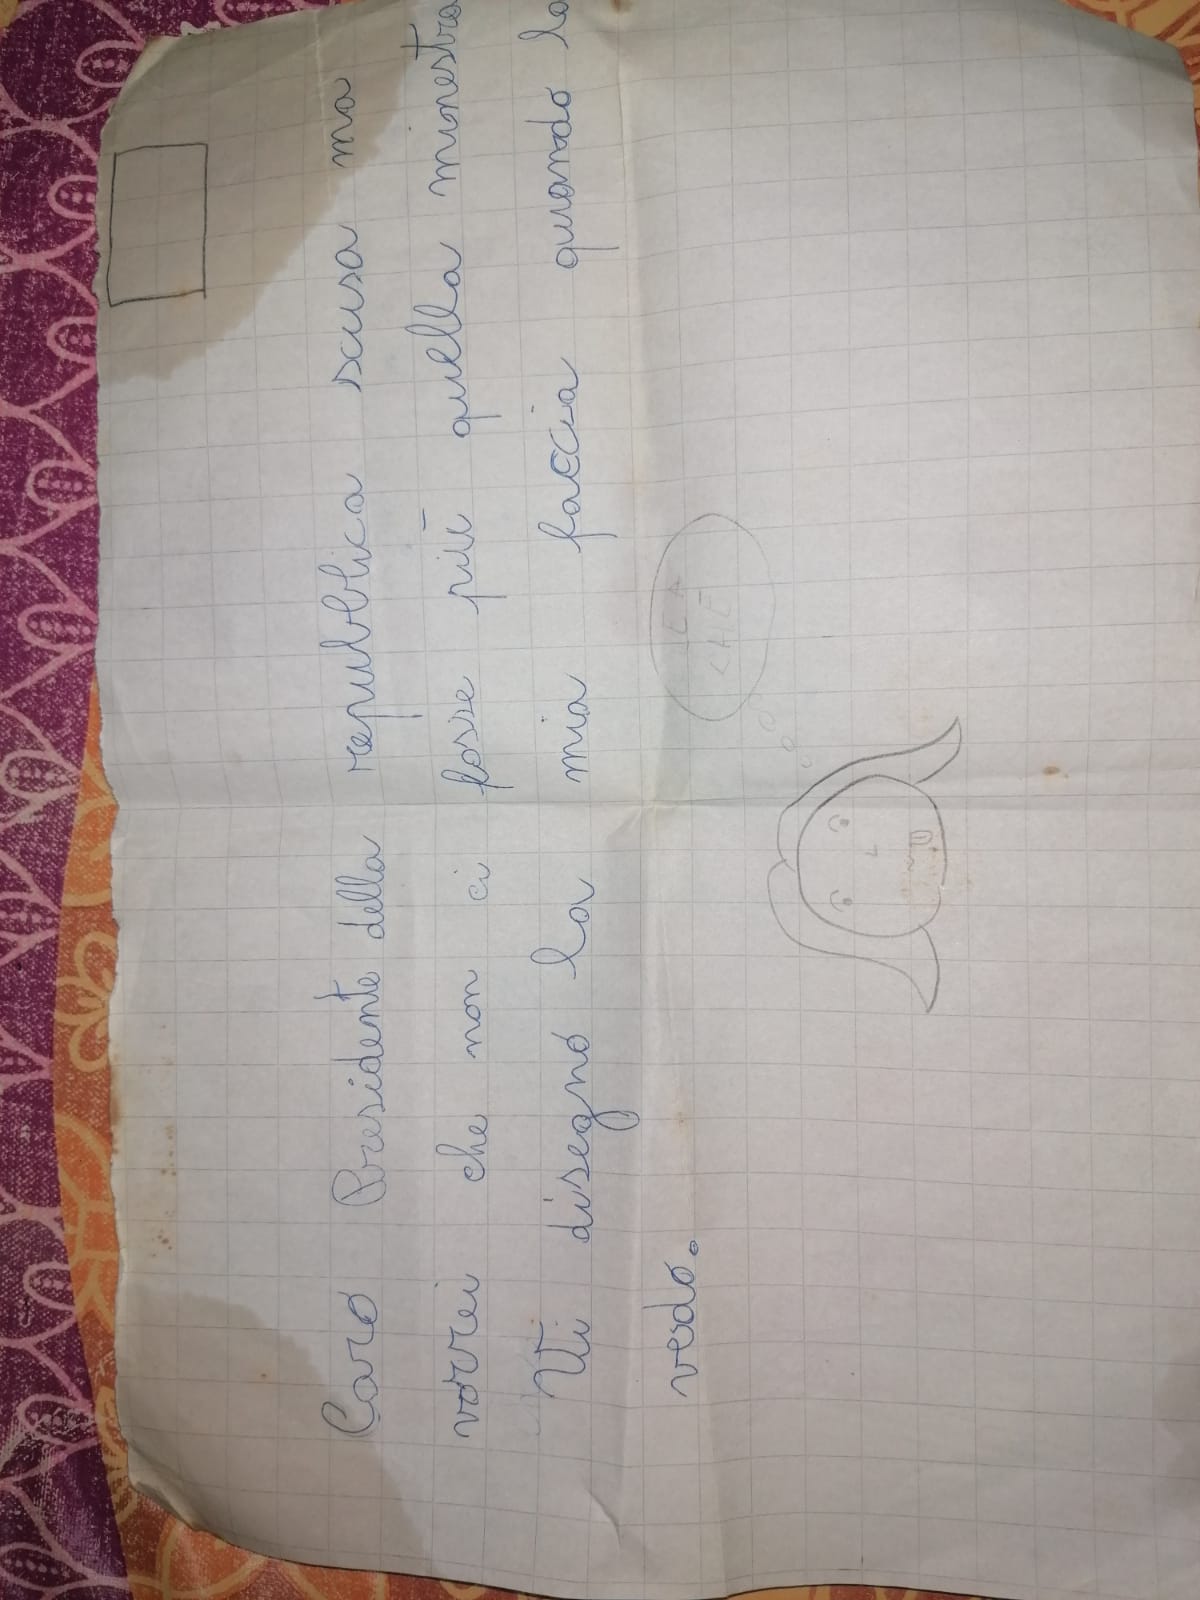 Caro Presidente della repubblica scusa ma
vorrei che non ci fosse più quella minestra
Vi disegno la mia faccia quando la
vedo.
CHE